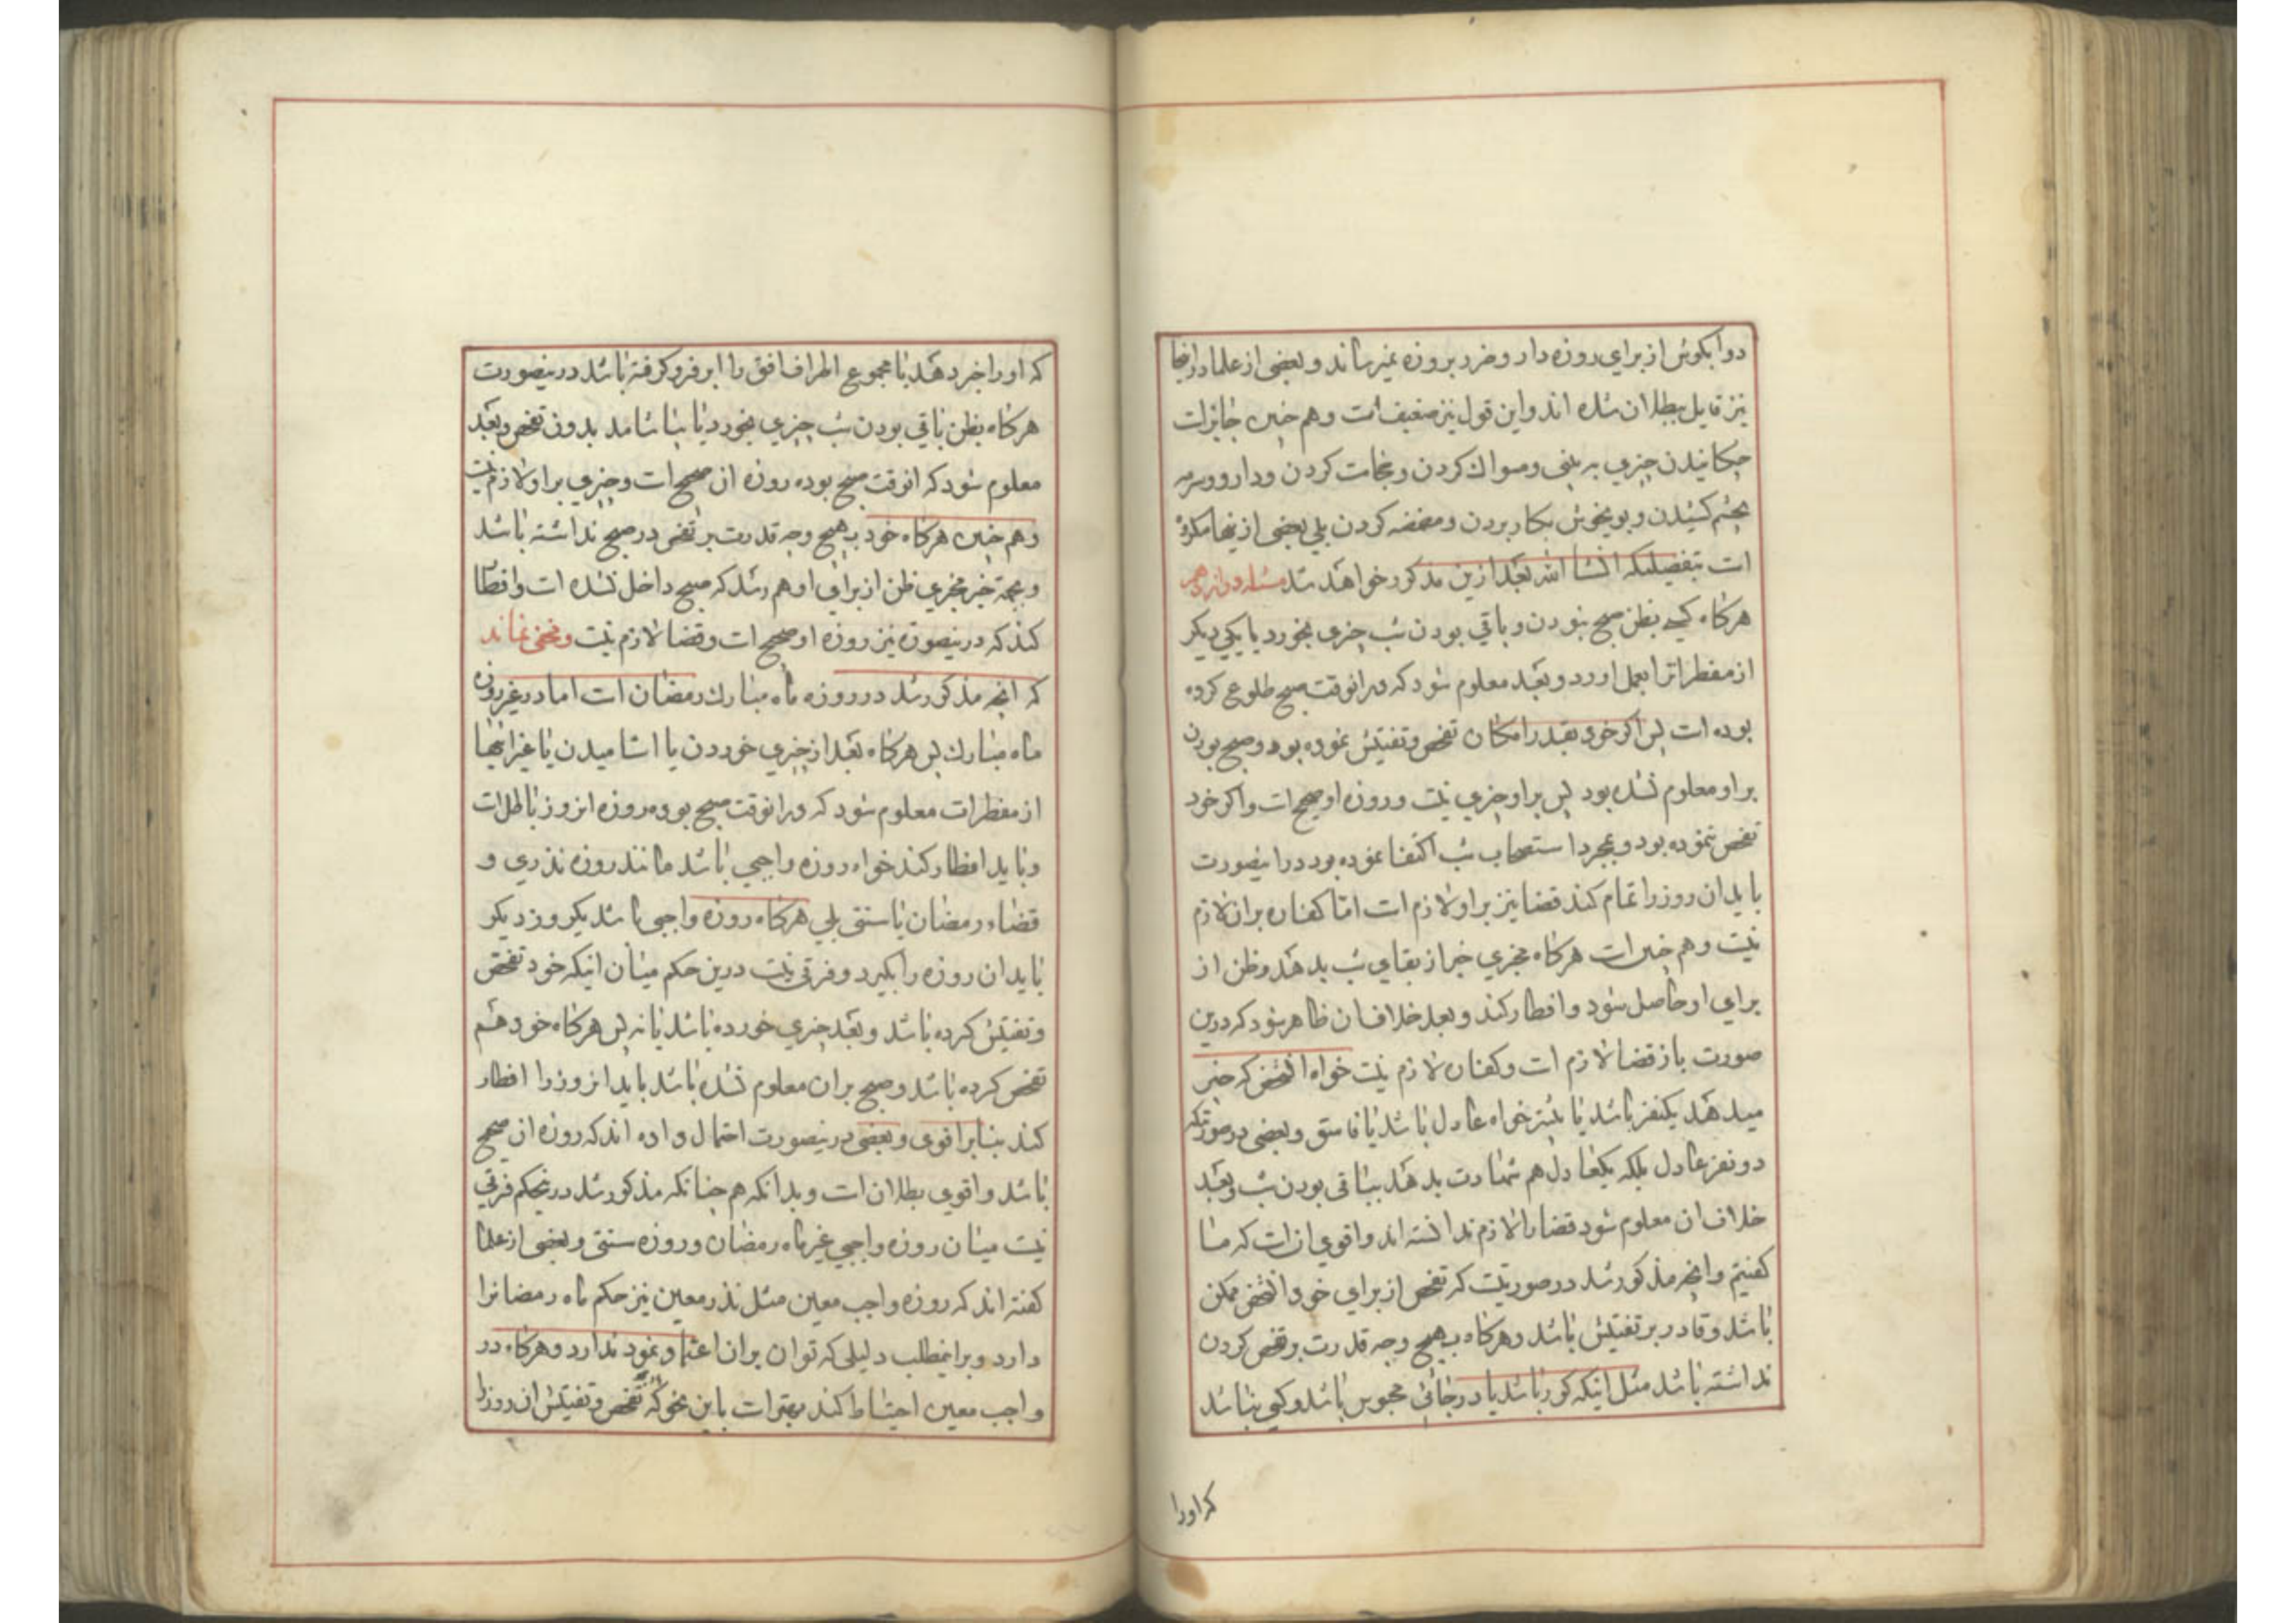 دوا بکوش از برای روزه دار و ضرر بروزه نمیرساند و بعضی از علما در اینجا
نیز قایل ببطلان شده اند و این قول نیز ضعیف است و هم چنین جایز است
چکانیدن چیزی به بینی و مسواک کردن و حجامت کردن و دارو و سرمه
بچشم کشیدن و بویخوش بکار بردن و مضمضه کردن بلی بعضی از ینها مکروه
است بتفصیلیکه انشا الله بعد ازین مذکور خواهد شد مسئله دوازدهم
هرکاه کسی بظن صبح نبودن و باقی بودن شب چیزی بخورد یا یکی دیکر
از مفطراترا بعمل اورد و بعد معلوم شود که در انوقت صبح طلوع کرده
بوده است پس اکر خود بقدر امکان تفحص و تفتیش نموده بود و صبح بودن
بر او معلوم نشده بود پس بر او چیزی نیست و روزه او صحیح است و اکر خود
تفحص ننموده بود و بمجرد استصحاب شب اکتفا نموده بود در اینصورت
باید ان روز را تمام کند قضا نیز بر او لازم است اما کفاره بران لازم
نیست و هم چنین است هرکاه مخبری خبر از بقای شب بدهد و ظن از
برای او حاصل شود و افطار کند و بعد خلاف ان ظاهر شود که درین
صورت باز قضا لازم است و کفاره لازم نیست خواه انشخص که خبر
میدهد یکنفر باشد یا بیشتر خواه عادل باشد یا فاسق و بعضی در صورتیکه
دو نفر عادل بلکه یکعادل هم شهادت بدهد بباقی بودن شب و بعد
خلاف ان معلوم شود قضا را لازم ندانسته اند و اقوی ان است که ما
کفتیم و انچه مذکور شد در صورتیست که تفحص از برای خود انشخص ممکن
باشد و قادر بر تفتیش باشد و هرکاه بهیچ وجه قدرت بر تفحص کردن
نداشته باشد مثل اینکه کور باشد یا در جائی محبوس باشد و کسی نباشد
که اورا
که او را خبر دهد یا مجموع اطراف افق را ابر فرو کرفته باشد درینصورت
هرکاه بظن باقی بودن شب چیزی بخورد یا بیاشامد بدون تفحص و بعد
معلوم شود که انوقت صبح بوده روزه ان صحیح است و چیزی بر او لازم نیست
و هم چنین هرکاه خود بهیچ وجه قدرت بر تفحص در صبح نداشته باشد
و بجهة خبر مخبری ظن از برای او هم رسد که صبح داخل نشده است و افطار
کند که درینصورة نیز روزه او صحیح است و قضا لازم نیست و مخفی نماند
که انچه مذکور شد در روزه ماه مبارک رمضان است اما در غیر روزه
ماه مبارک پس هرکاه بعد از چیزی خوردن یا اشامیدن یا غیر اینها
از مفطرات معلوم شود که در انوقت صبح بوده روزه انروز باطل است
و باید افطار کند خواه روزه واجبی باشد مانند روزه نذری و
قضاء رمضان یا سنتی بلی هرکاه روزه واجبی باشد یکروز دیکر
باید ان روزه را بکیرد و فرقی نیست درین حکم میان اینکه خود تفحص
و تفتیش کرده باشد و بعد چیزی خورده باشد یا نه پس هرکاه خود هم
تفحص کرده باشد و صبح بران معلوم نشده باشد باید انروز را افطار
کند بنابر اقوی و بعضی درینصورت احتمال داده اند که روزه ان صحیح
باشد و اقوی بطلان است و بدانکه هم چنانکه مذکور شد درینحکم فرقی
نیست میان روزه واجبی غیر ماه رمضان و روزه سنتی و بعضی از علما
کفته اند که روزه واجب معین مثل نذر معین نیز حکم ماه رمضانرا
دارد و براینمطلب دلیلی که توان بران اعتماد نمود ندارد و هرکاه در
واجب معین احتیاط کند بهتر است باین نحو که تفحص و تفتیش ان روز را